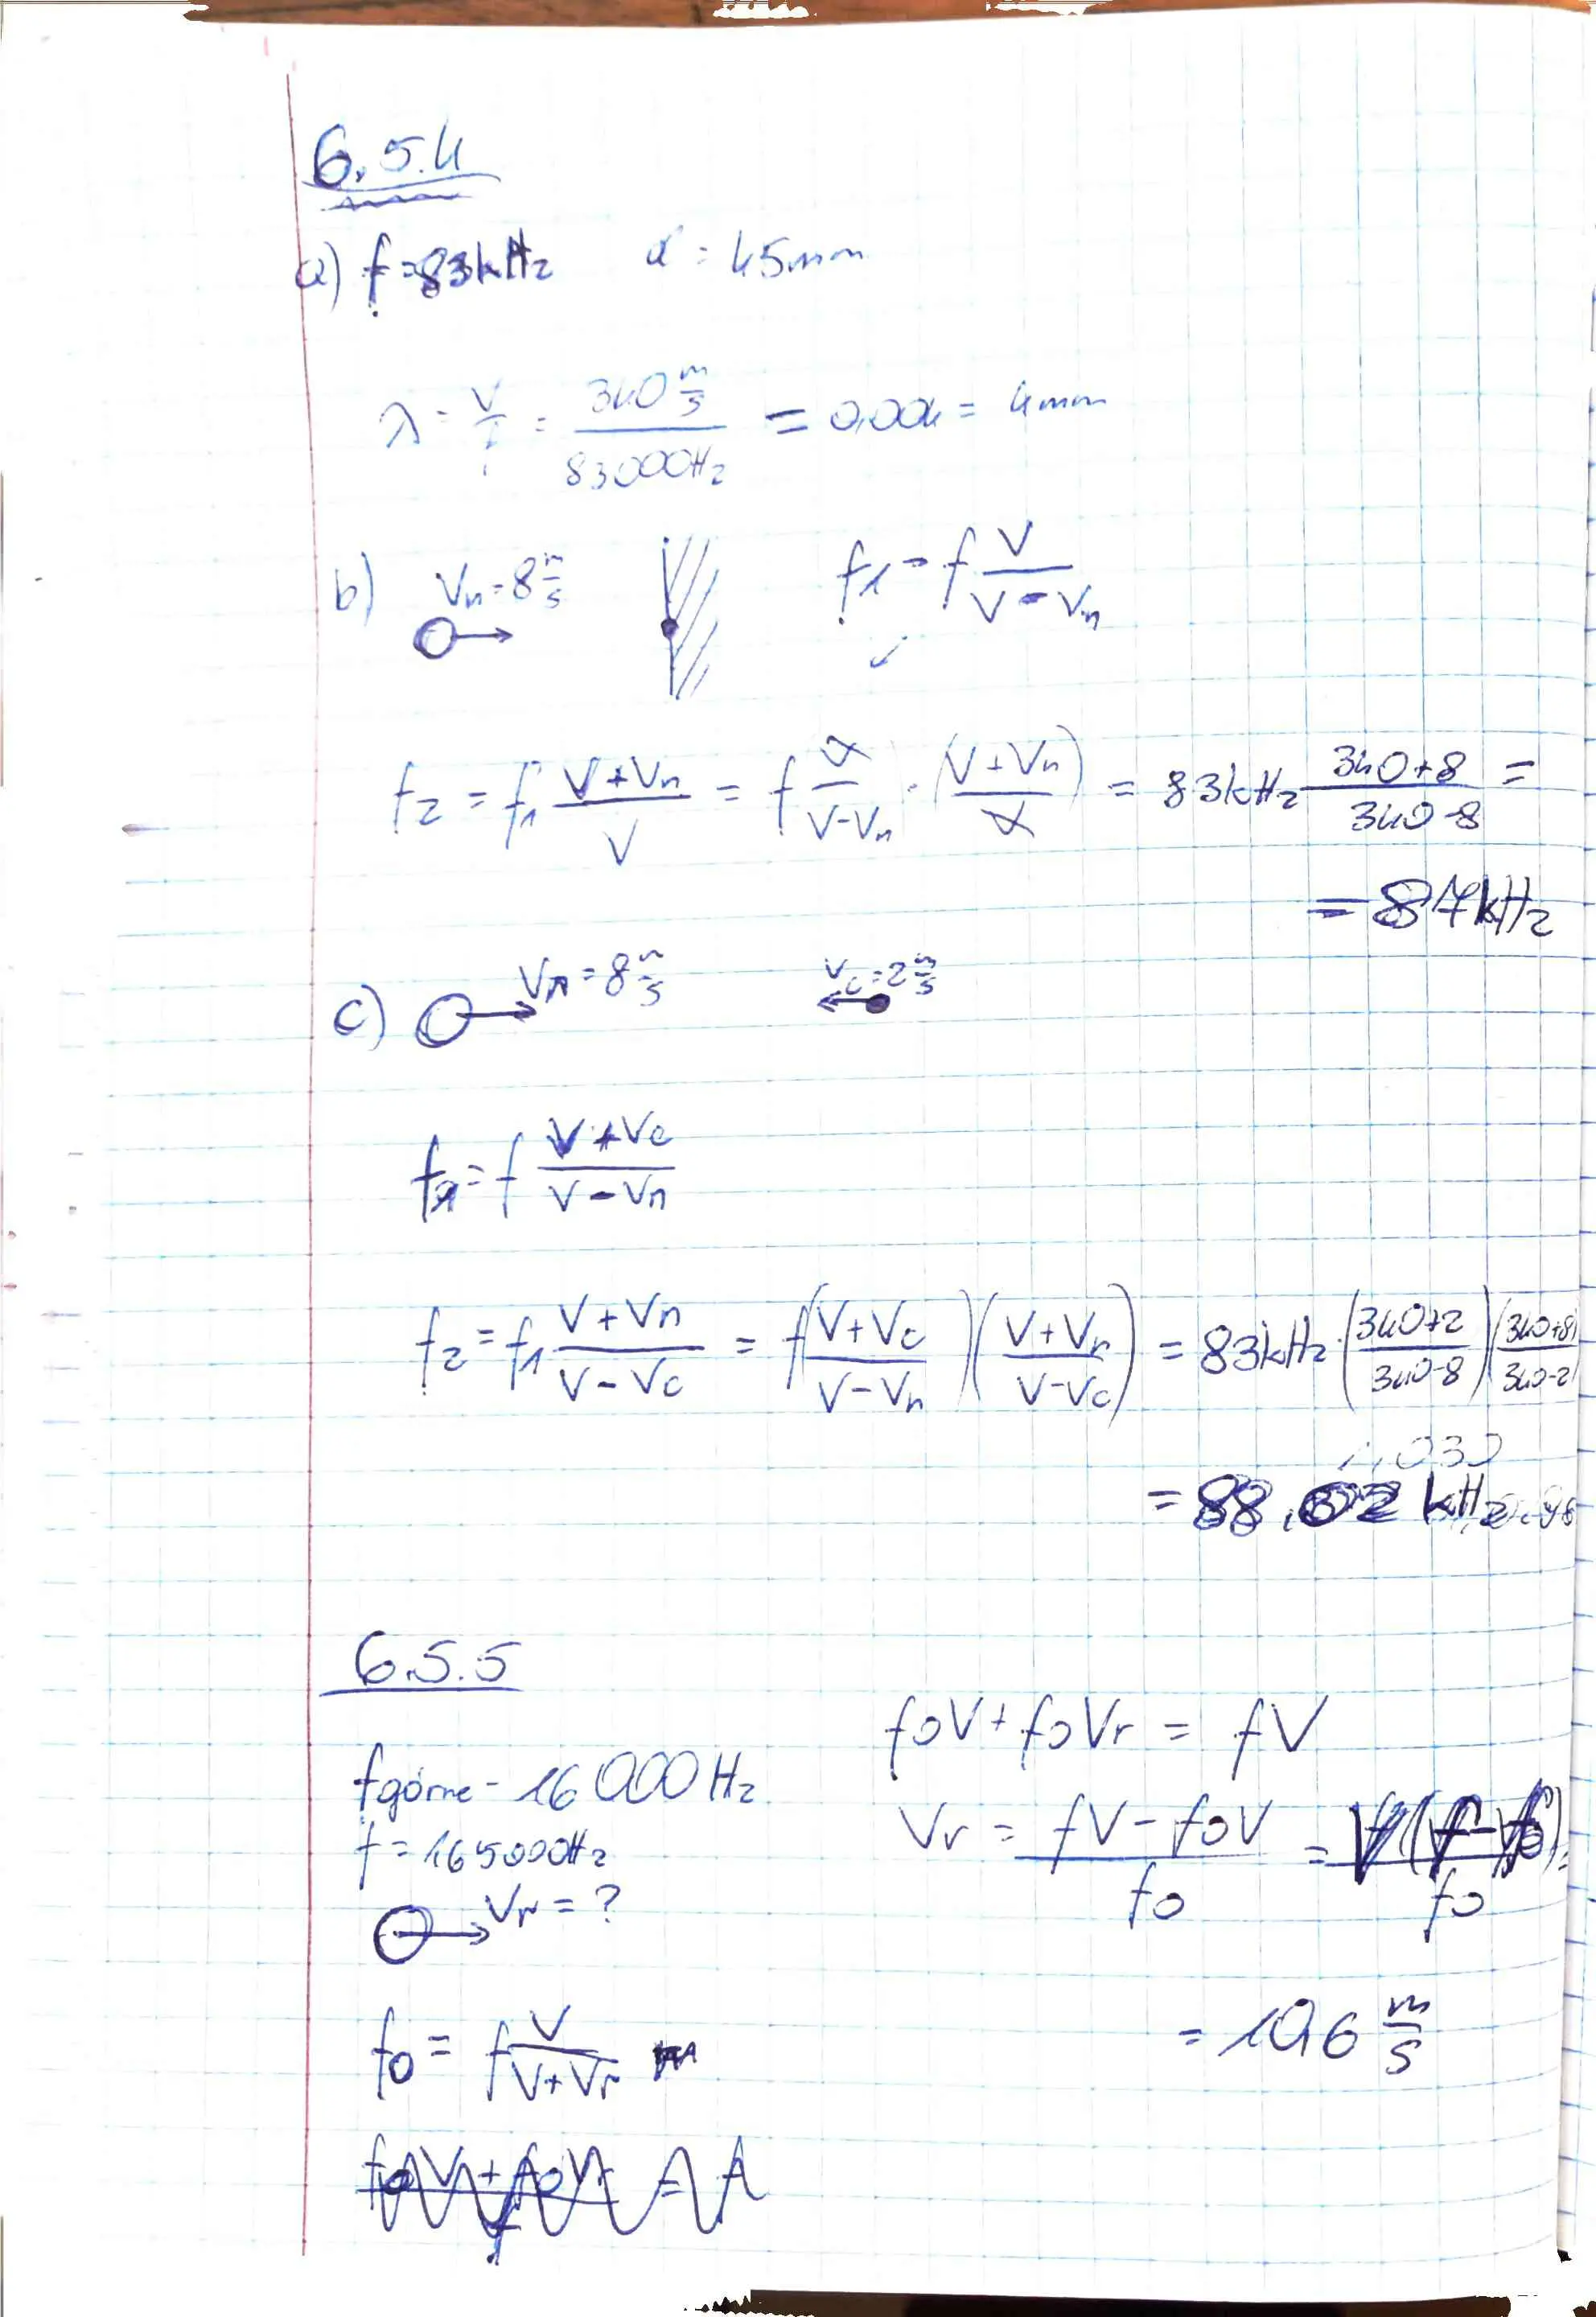 6.5.4
a) f=83kHz d = 45mm
λ = v/f = 340 m/s / 83000Hz = 0,004 = 4mm
b) Vn = 8 m/s f1 = f V/(V - Vn)
f2 = f1 (V+Vn)/V = f V/(V-Vn) · (V+Vn)/V = 83kHz (340+8)/(340-8) =
= 87kHz
c) Vn = 8 m/s Vc = 2 m/s
f1 = f (V+Vc)/(V-Vn)
f2 = f1 (V+Vn)/(V-Vc) = f((V+Vc)/(V-Vn))((V+Vn)/(V-Vc)) = 83kHz · ((340+2)/(340-8))((340+8)/(340-2))
= 88,02 kHz
6.5.5
f górne - 16 000 Hz
f = 165000Hz
Vr = ?
f0 = f V/(V+Vr)
f0V + f0Vr = fV
Vr = (fV - f0V)/f0 = V(f-f0)/f0 =
= 10,6 m/s